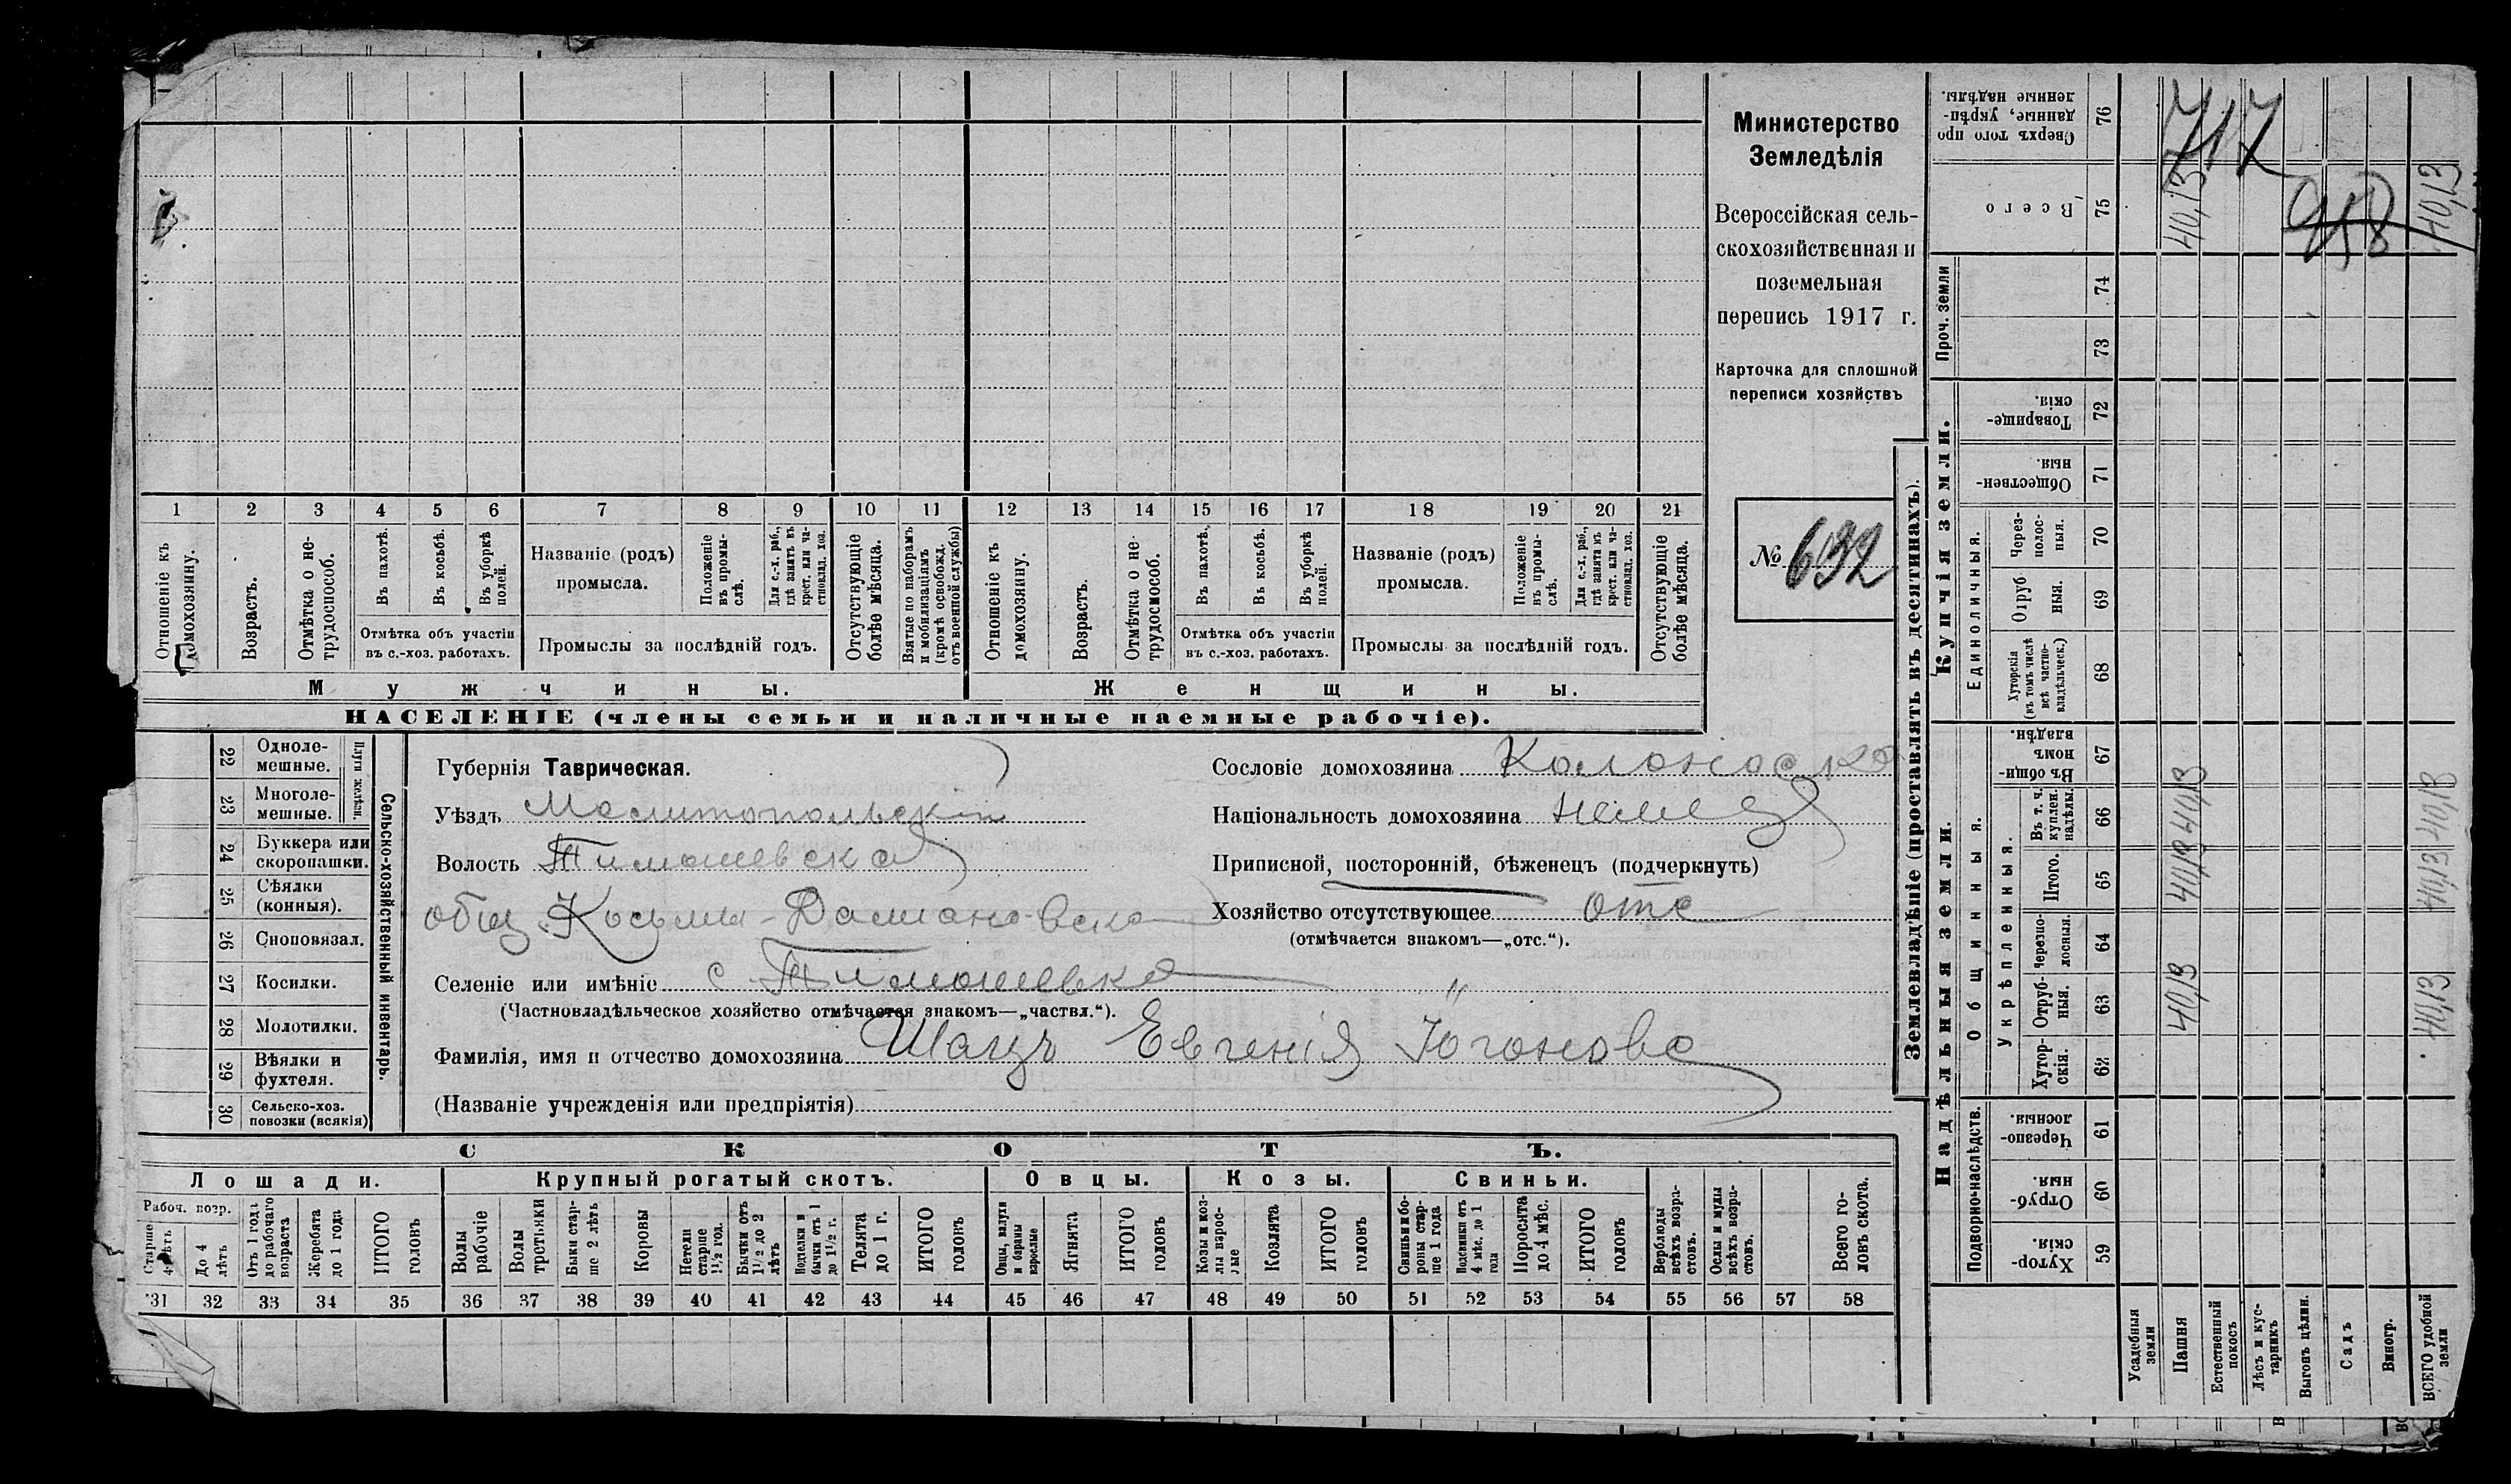 1 2 3 4 5 6 7 8 9 10 11 12 13 14 15 16 17 18 19 20 21
Отношеніе къ домохозяину.
Возрастъ.
Отмѣтка о не-
трудоспособ.
Въ пахотѣ.
Въ косьбѣ.
Въ уборкѣ полей.
Отмѣтка объ участіи
въ с.-хоз. работахъ.
Названіе (родъ)
промысла.
Положеніе
въ промы-
слѣ.
Для с.-х. раб.,
гдѣ занятъ въ
крест. или ча-
стновлад. хоз.
Промыслы за послѣдній годъ.
Отсутствующіе
болѣе мѣсяца.
Взятые по наборамъ
и мобилизаціямъ
(кромѣ освобожд.
отъ военной службы)
Отношеніе къ
домохозяину.
Возрастъ.
Отмѣтка о не-
трудоспособ.
Въ пахотѣ.
Въ косьбѣ.
Въ уборкѣ
полей.
Отмѣтка объ участіи
въ с.-хоз. работахъ.
Названіе (родъ)
промысла.
Положеніе
въ промы-
слѣ.
Для с.-х. раб.,
гдѣ занята въ
крест. или ча-
стновлад. хоз.
Промыслы за послѣдній годъ.
Отсутствующіе
болѣе мѣсяца.
Мужчины.
Женщины.
НАСЕЛЕНІЕ (члены семьи и наличные наемные рабочіе).
Министерство
Земледѣлія
Всероссійская сель-
скохозяйственная и
поземельная
перепись 1917 г.
Карточка для сплошной
переписи хозяйствъ
№ 632
22 Однолемешные.
23 Многолемешные.
Плуги желѣзн.
24 Буккера или
скоропашки.
25 Сѣялки
(конныя).
26 Сноповязал.
27 Косилки.
28 Молотилки.
29 Вѣялки и
фухтеля.
30 Сельско-хоз.
повозки (всякія)
Сельско-хозяйственный инвентарь.
Губернія Таврическая.
Уѣздъ Мелитопольскій
Волость Тимошевская
общ. Косьми-Даміановска
Селеніе или имѣніе с Тимошевка "
(Частновладѣльческое хозяйство отмѣчается знакомъ—„частвл.“).
Фамилія, имя и отчество домохозяина Шацъ Евгенія Югоновс
(Названіе учрежденія или предпріятія)
Сословіе домохозяина
Національность домохозяина немец
Приписной, посторонній, бѣженецъ (подчеркнуть)
Хозяйство отсутствующее отс
(отмѣчается знакомъ—„отс.“).
СКОТЪ.
Лошади.
Крупный рогатый скотъ.
Овцы.
Козы.
Свиньи.
Рабоч. возр.
Старше
4 лѣтъ
До 4
лѣтъ
Отъ 1 года
до рабочаго
возраста
Жеребята
до 1 года
ИТОГО
головъ
Волы
рабочіе
Волы
третьяки
Быки стар-
ше 2 лѣтъ
Коровы
Нетели
старше
1½ год.
Бычки отъ
1½ до 2
лѣтъ
Подтелки и
бычки отъ 1
до 1½ г.
Телята
до 1 г.
ИТОГО
головъ
Овцы, валухи
и бараны
взрослые
Ягнята
ИТОГО
головъ
Козы и коз-
лы взрос-
лые
Козлята
ИТОГО
головъ
Свиньи и бо-
ровы стар-
ше 1 года
Подсвинки отъ
4 мѣс. до 1
года
Поросята
до 4 мѣс.
ИТОГО
головъ
Верблюды
всѣхъ возра-
стовъ.
Ослы и мулы
всѣхъ возра-
стовъ.
Всего го-
ловъ скота.
31 32 33 34 35 36 37 38 39 40 41 42 43 44 45 46 47 48 49 50 51 52 53 54 55 56 57 58
Землевладѣніе (проставлять въ десятинахъ).
Надѣльныя земли.
Купчія земли.
Проч. земли
Подворно-наслѣдств.
Общинныя.
Укрѣпленныя.
Единоличныя.
Хутор-
скія. 59
Отруб-
ныя. 60
Черезпо-
лосныя. 61
Хутор-
скія. 62
Отруб-
ныя. 63
Черезпо-
лосныя. 64
Итого. 65
Въ т. ч.
куплен.
надѣлы. 66
Въ общин-
номъ
владѣн. 67
Хуторскія
(въ томъ числѣ
всѣ частно-
владѣльческ.) 68
Отруб
ныя. 69
Через-
полос-
ныя. 70
Обществен-
ныя. 71
Товарище-
скія. 72
73
74
Всего 75
Сверхъ того про
данные, укрѣп-
ленные надѣлы. 76
Усадебныя
земли
Пашня 40,13 40,13 40,13 40,13
Естественный
покосъ
Лѣсъ и кус-
тарникъ
Выгонъ цѣлин.
Садъ
Виногр.
ВСЕГО удобной
земли 40,13 40,13 40,13 40,13
717
958